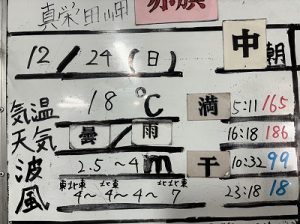 真栄田岬 赤旗
12/24(日) 中 朝
気温 18℃ 満 5:11 165
天気 曇/雨 16:18 186
波 2.5~4m 干 10:32 99
風 東北東 4~ 北東 4~ 4~ 北北東 7 23:18 18